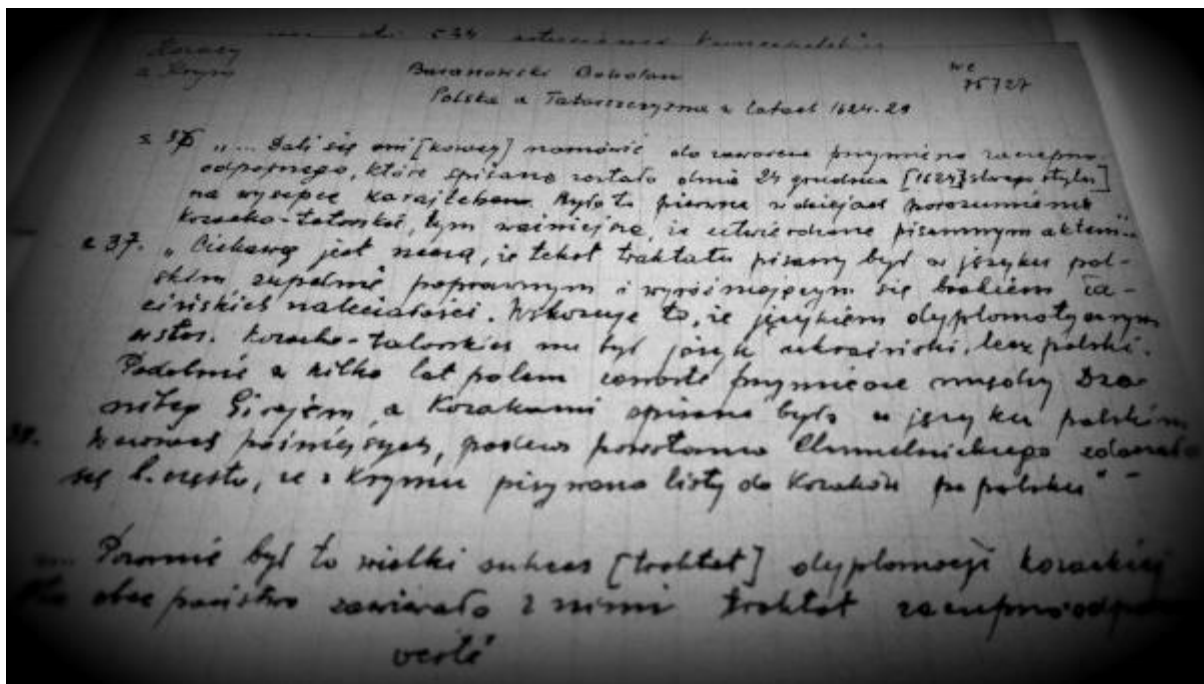 Kozacy
a Krym
Baranowski Bohdan
Polska a Tatarszczyzna w latach 1624-29
WC
75727
s 36 „... Dali się oni [kozacy] namówić do zawarcia przymierza zaczepno-
odpornego, które spisane zostało dnia 24 grudnia [1624] starego stylu
na wysepce Karajteben. Było to pierwsze w dziejach porozumienie
kozacko-tatarskie, tym ważniejsze, że utwierdzone pisemnym aktem..."
s 37. „Ciekawą jest rzeczą, że tekst traktatu pisany był w języku pol-
skim zupełnie poprawnym i wyróżniającym się brakiem ła-
cińskich naleciałości. Wskazuje to, że językiem dyplomatycznym
w stos. kozacko-tatarskich nie był język ukraiński, lecz polski.
Podobnie w kilka lat potem zawarte przymierze między Dża-
nibeg Girejem, a Kozakami spisane było w języku polskim
W czasach późniejszych, podczas powstania Chmielnickiego zdarzało
się b. często, że z Krymu pisywano listy do Kozaków po polsku"
... Pozornie był to wielki sukces [traktat] dyplomacji kozackiej
obce państwo zawierało z nimi traktat